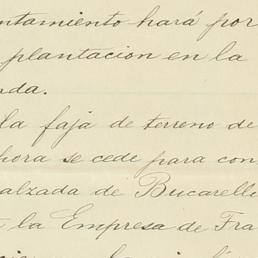 ntamiento hará por
plantacion en la
da.
la faja de terreno de
hora se cede para con
alzada de Bucareli
la Empresa de Fra